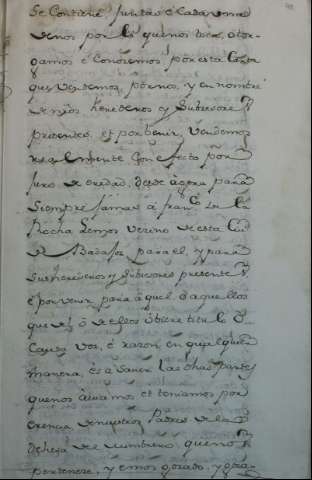 se Contiene, Juntas ê Cada una
denos por lo quenos toca, otor-
gamos e Conosemos por esta Carta
que vendemos, por nos, y en nombre
de nr̃os herederos y subsesores
presentes, et por benir, Vendemos
realmente Con efecto por
Juro de eredad, desde agora para
Siempre Jamas â franco de la
Rocha Lemos Vezino de esta Ciu
de Badajoz para el, y para
sus herederos y subsesores presente
ê por venir para aquel, ô aquellos
que del ô de ellos ubiere titulo
Causa Vos, ê razon en qualquier
manera, es a saver Las dhas partes
quenos aviamos et teniamos por
erencia de nuestros Padres de la
Dehesa del sumbrero que nos
pertenese, y emos gosado, y gosa-